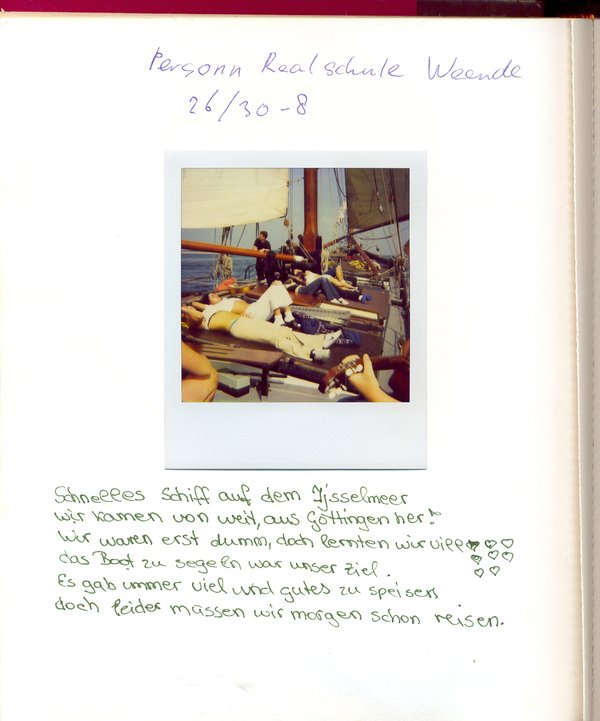 Personn Realschule Weende
26/30-8
Schnelles Schiff auf dem Ijsselmeer
wir kamen von weit, aus Göttingen her!
Wir waren erst dumm, doch lernten wir viel
das Boot zu segeln war unser Ziel.
Es gab immer viel und gutes zu speisen
doch leider müssen wir morgen schon reisen.